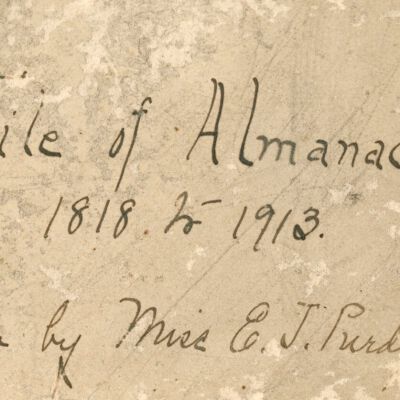 File of Almanac
1818 to 1913.
by Miss E. J. Purd